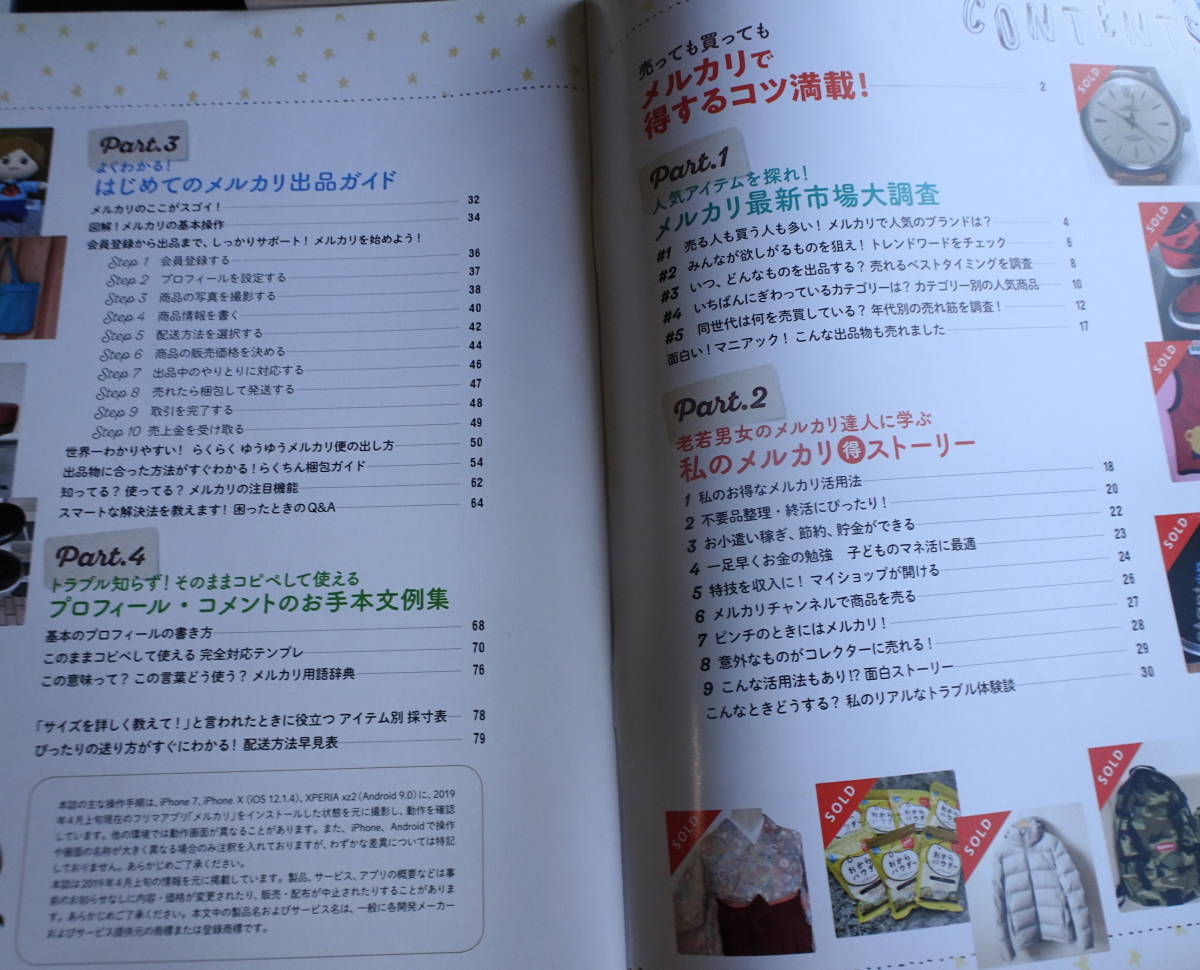 CONTENTS
売っても買っても
メルカリで
得するコツ満載! 2
Part.1
人気アイテムを探れ!
メルカリ最新市場大調査
#1 売る人も買う人も多い! メルカリで人気のブランドは? 4
#2 みんなが欲しがるものを狙え! トレンドワードをチェック 6
#3 いつ、どんなものを出品する? 売れるベストタイミングを調査 8
#4 いちばんにぎわっているカテゴリーは? カテゴリー別の人気商品 10
#5 同世代は何を売買している? 年代別の売れ筋を調査! 12
面白い! マニアック! こんな出品物も売れました 17
Part.2
老若男女のメルカリ達人に学ぶ
私のメルカリ得ストーリー
1 私のお得なメルカリ活用法 18
2 不要品整理・終活にぴったり! 20
3 お小遣い稼ぎ、節約、貯金ができる 22
4 一足早くお金の勉強 子どものマネ活に最適 23
5 特技を収入に! マイショップが開ける 24
6 メルカリチャンネルで商品を売る 26
7 ピンチのときにはメルカリ! 27
8 意外なものがコレクターに売れる! 28
9 こんな活用法もあり!? 面白ストーリー 29
こんなときどうする? 私のリアルなトラブル体験談 30
Part.3
よくわかる!
はじめてのメルカリ出品ガイド
メルカリのここがスゴイ! 32
図解!メルカリの基本操作 34
会員登録から出品まで、しっかりサポート! メルカリを始めよう!
Step 1 会員登録する 36
Step 2 プロフィールを設定する 37
Step 3 商品の写真を撮影する 38
Step 4 商品情報を書く 40
Step 5 配送方法を選択する 42
Step 6 商品の販売価格を決める 44
Step 7 出品中のやりとりに対応する 46
Step 8 売れたら梱包して発送する 47
Step 9 取引を完了する 48
Step 10 売上金を受け取る 49
世界一わかりやすい! らくらく ゆうゆうメルカリ便の出し方 50
出品物に合った方法がすぐわかる!らくちん梱包ガイド 54
知ってる? 使ってる? メルカリの注目機能 62
スマートな解決法を教えます! 困ったときのQ&A 64
Part.4
トラブル知らず! そのままコピペして使える
プロフィール・コメントのお手本文例集
基本のプロフィールの書き方 68
このままコピペして使える 完全対応テンプレ 70
この意味って? この言葉どう使う? メルカリ用語辞典 76
「サイズを詳しく教えて!」と言われたときに役立つ アイテム別 採寸表 78
ぴったりの送り方がすぐにわかる! 配送方法早見表 79
本誌の主な操作手順は、iPhone 7、iPhone X(iOS 12.1.4)、XPERIA xz2(Android 9.0)に、2019
年4月上旬現在のフリマアプリ「メルカリ」をインストールした状態を元に撮影し、動作を確認
しています。他の環境では動作画面が異なることがあります。また、iPhone、Androidで操作
や画面の名称が大きく異なる場合のみ注釈を入れておりますが、わずかな差異については特記
しておりません。あらかじめご了承ください。
本誌は2019年4月上旬の情報を元に掲載しています。製品、サービス、アプリの概要などは事
前のお知らせなしに内容・価格が変更されたり、販売・配布が中止されたりすることがありま
す。あらかじめご了承ください。本文中の製品名およびサービス名は、一般に各開発メーカー
およびサービス提供元の商標または登録商標です。
SOLD
SOLD
SOLD
SOLD
SOLD
SOLD
SOLD
SOLD
おから
パウダー
Supreme